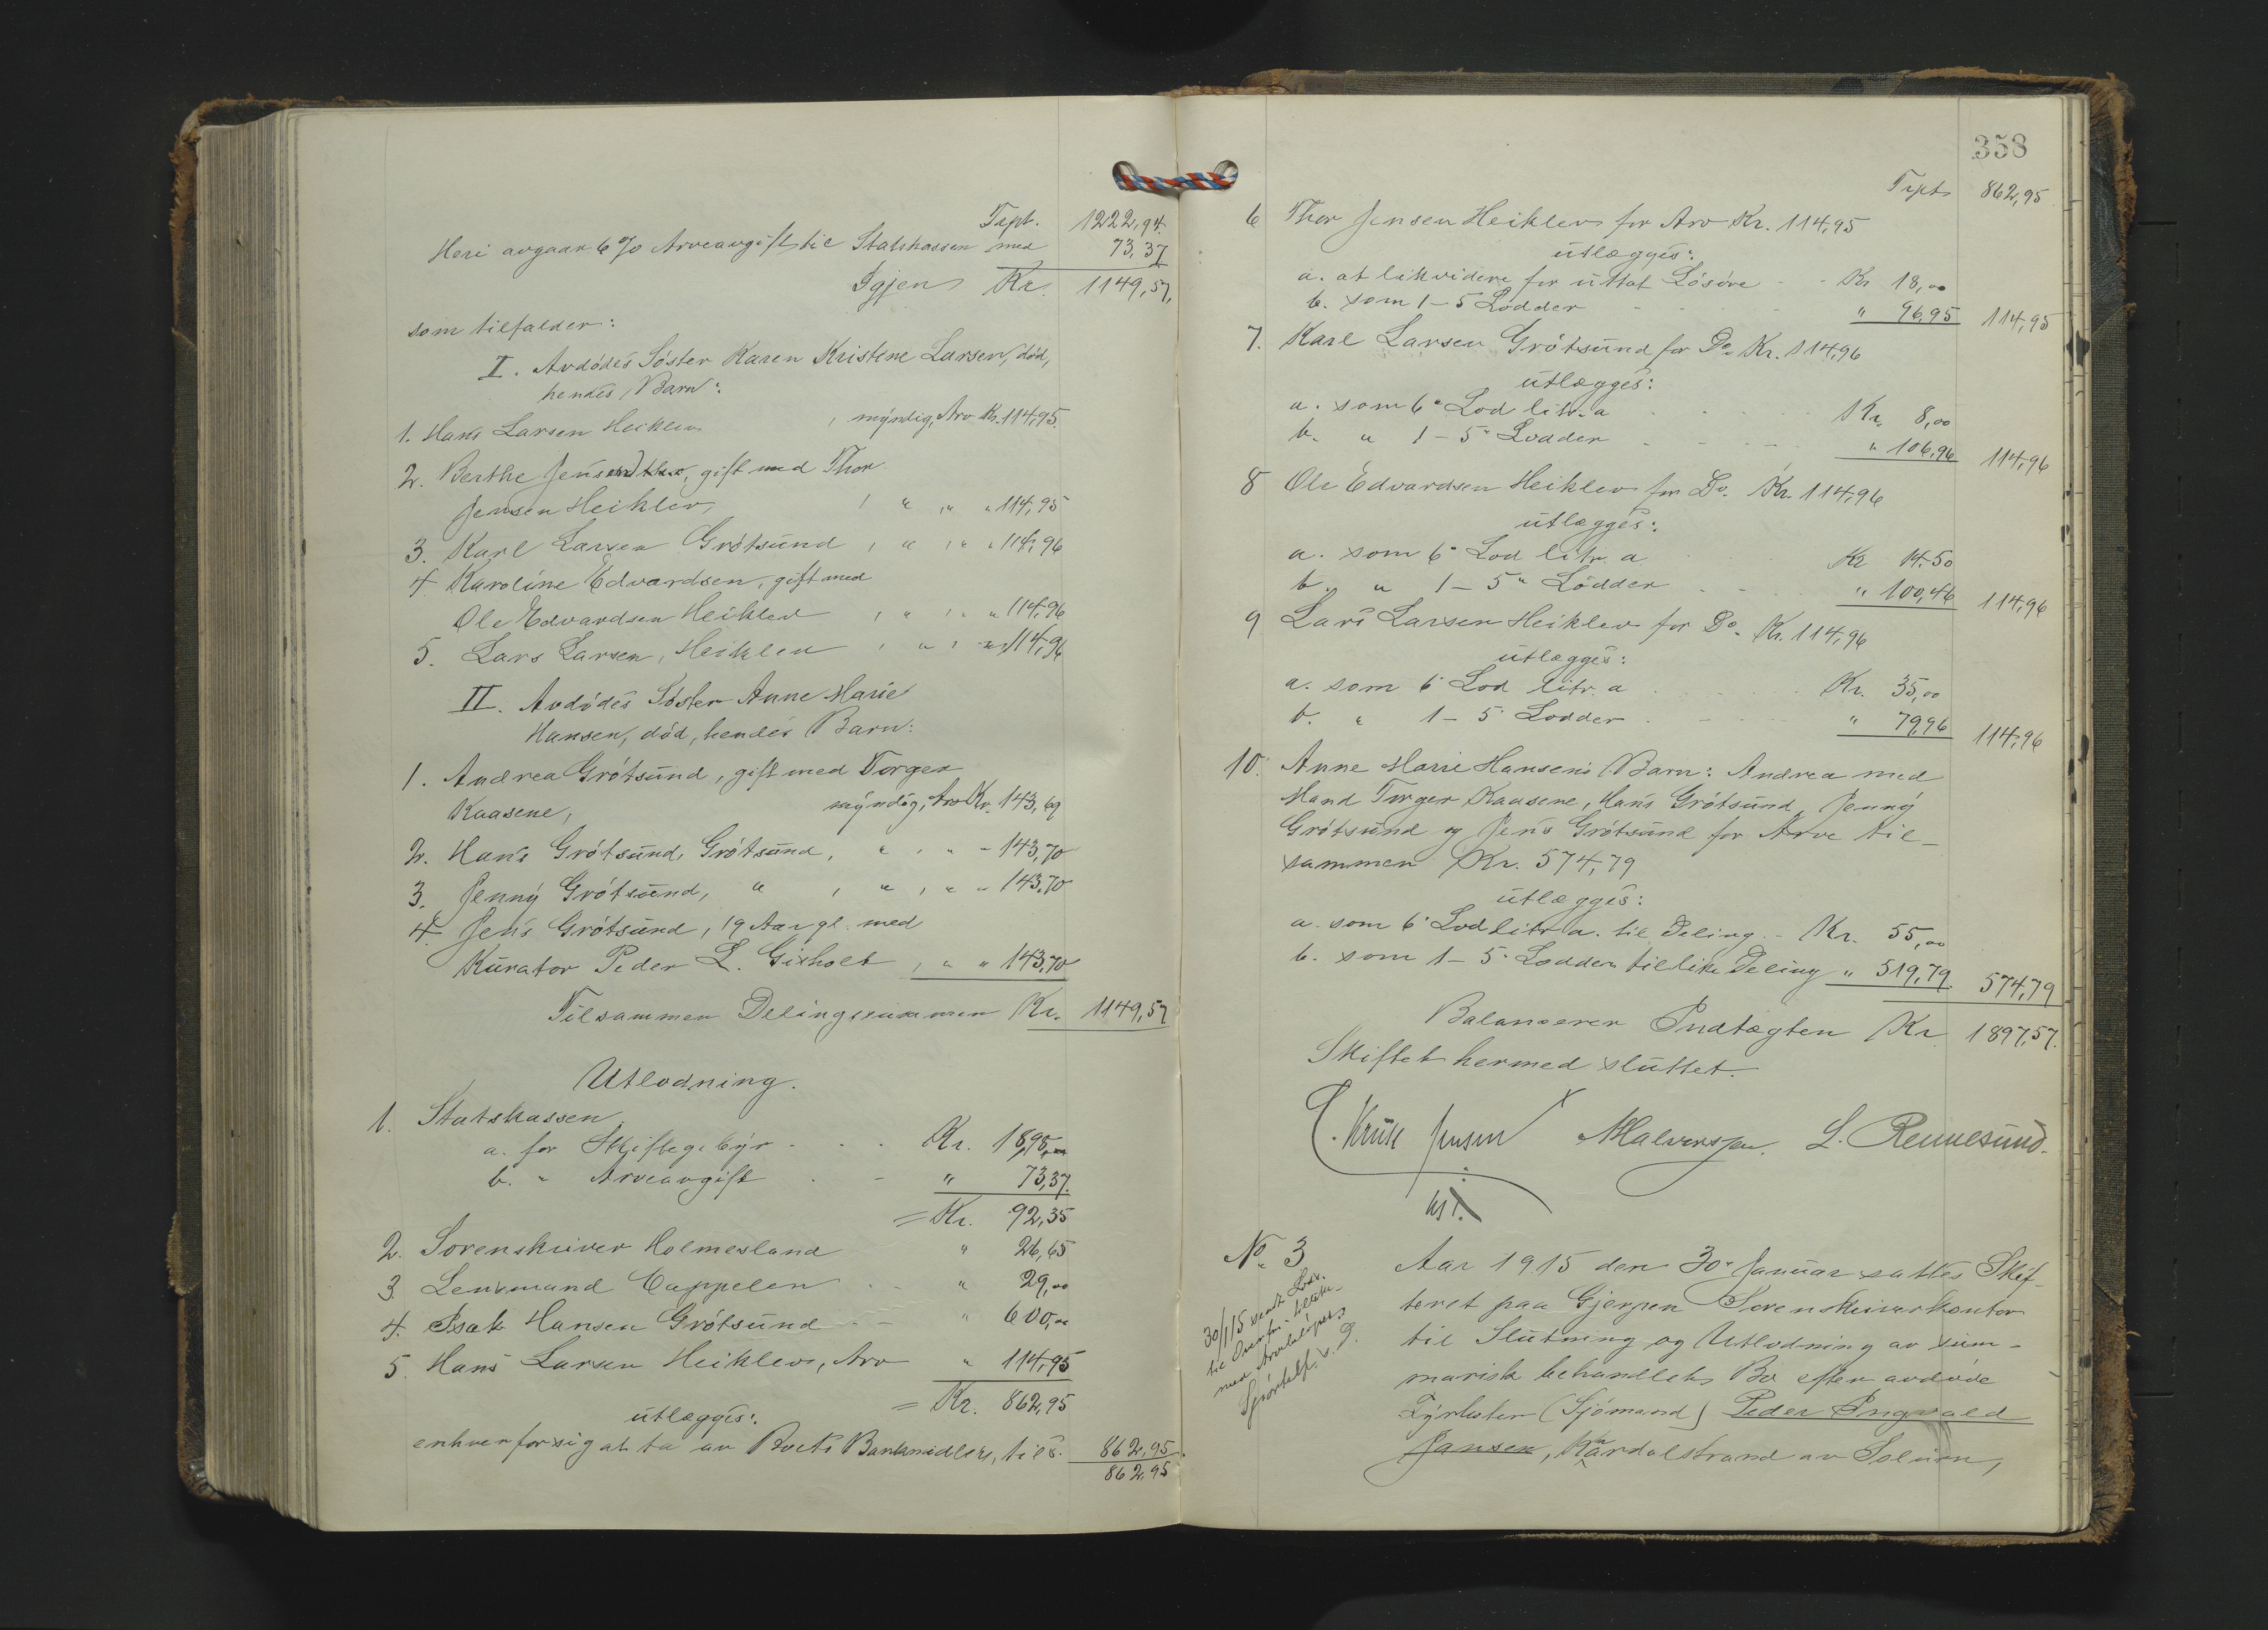 Trpt. 1222,94.
Heri avgaar 6 % Arveavgift til Statskassen med 73,37
Igjen Kr. 1149,57,
som tilfalder:
I. Avdødes Søster Karen Kristine Larsen, død,
hendes Barn:
1. Hans Larsen Heiklev, myndig, Arv Kr. 114,95.
2. Berthe Jensen, gift med Thor
Jensen Heiklev, " " " 114,95
3. Karl Larsen Grøtsund, " " " 114,96
4. Karoline Edvardsen, gift med
Ole Edvardsen Heiklev, " " " 114,96
5. Lars Larsen, Heiklev, " " " 114,96
II. Avdødes Søster Anne Marie
Hansen, død, hendes Barn:
1. Andrea Grøtsund, gift med Torger
Kaasene, myndig, Arv Kr. 143,69
2. Hans Grøtsund, Grøtsund, " " " 143,70
3. Jenny Grøtsund, " , " , " " 143,70
4. Jens Grøtsund, 19 Aar gl. med
Kurator Peder L. Gisholt, " " 143,70
Tilsammen Delingssummen Kr. 1149,57
Utlodning.
1. Statskassen
a. for Skiftegebyr - - - Kr. 18,98
b. " Arveavgift - - " 73,37.
= Kr. 92,35
2. Sorenskriver Holmesland " 26,65
3. Lensmand Cappelen - - " 29,00
4. Isak Hansen Grøtsund - - " 600,00
5. Hans Larsen Heiklev, Arv " 114,95
= Kr. 862,95
utlægges:
enhver for sig at ta av Boets Bankmidler, tils. 862,95
862,95
358
Trpt 862,95
6 Thor Jensen Heiklev for Arv Kr. 114,95
utlægges:
a. at likvidere for uttat Løsøre - - Kr 18,00
b. som 1-5 Lodder - - - " 96,95 114,95
7. Karl Larsen Grøtsund for Do. Kr. 114,96
utlægges:
a. som 6" Lod litr. a - - - Kr. 8,00
b. " 1-5" Lodder - - - " 106,96 114,96
8 Ole Edvardsen Heiklev for Do. Kr. 114,96
utlægges:
a. som 6" Lod litr. a Kr 14,50
b. " 1-5" Lodder - - - " 100,46 114,96
9 Lars Larsen Heiklev for Do. Kr. 114,96
utlægges:
a. som 6" Lod litr. a - - - Kr. 35,00
b. " 1-5" Lodder - - - " 79,96 114,96
10. Anne Marie Hansens Barn: Andrea med
Mand Torger Kaasene, Hans Grøtsund, Jenny
Grøtsund og Jens Grøtsund for Arve til-
sammen Kr. 574,79
utlægges:
a. som 6" Lod litr a. til Deling - Kr. 55,00
b. som 1-5" Lodder til like Deling " 519,79. 574,79
Balancerer Indtægten Kr 1897,57.
Skiftet hermed sluttet.
Kruse Jensen Halvorsen. L. Rennesund.
kst.
No. 3
Aar 1915 den 30" Januar sattes Skif-
teret paa Gjerpen Sorenskriverkontor
til Slutning og Utlodning av sum-
marisk behandlet Bo efter avdøde
Fyrbøter (Sjømand) Peder Ingvald
Jansen, Aardalstrand av Solum,
30/1 15 sendt
til
med